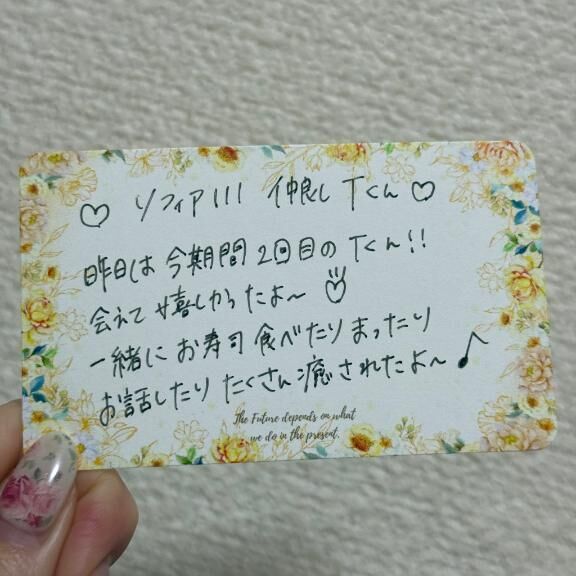 ♡ ソフィア111 仲良し Tくん ♡
昨日は 今期間 2回目の Tくん!!
会えて 嬉しかったよ〜
一緒に お寿司 食べたり まったり
お話したり たくさん癒されたよ〜♪
The Future depends on what
we do in the present.